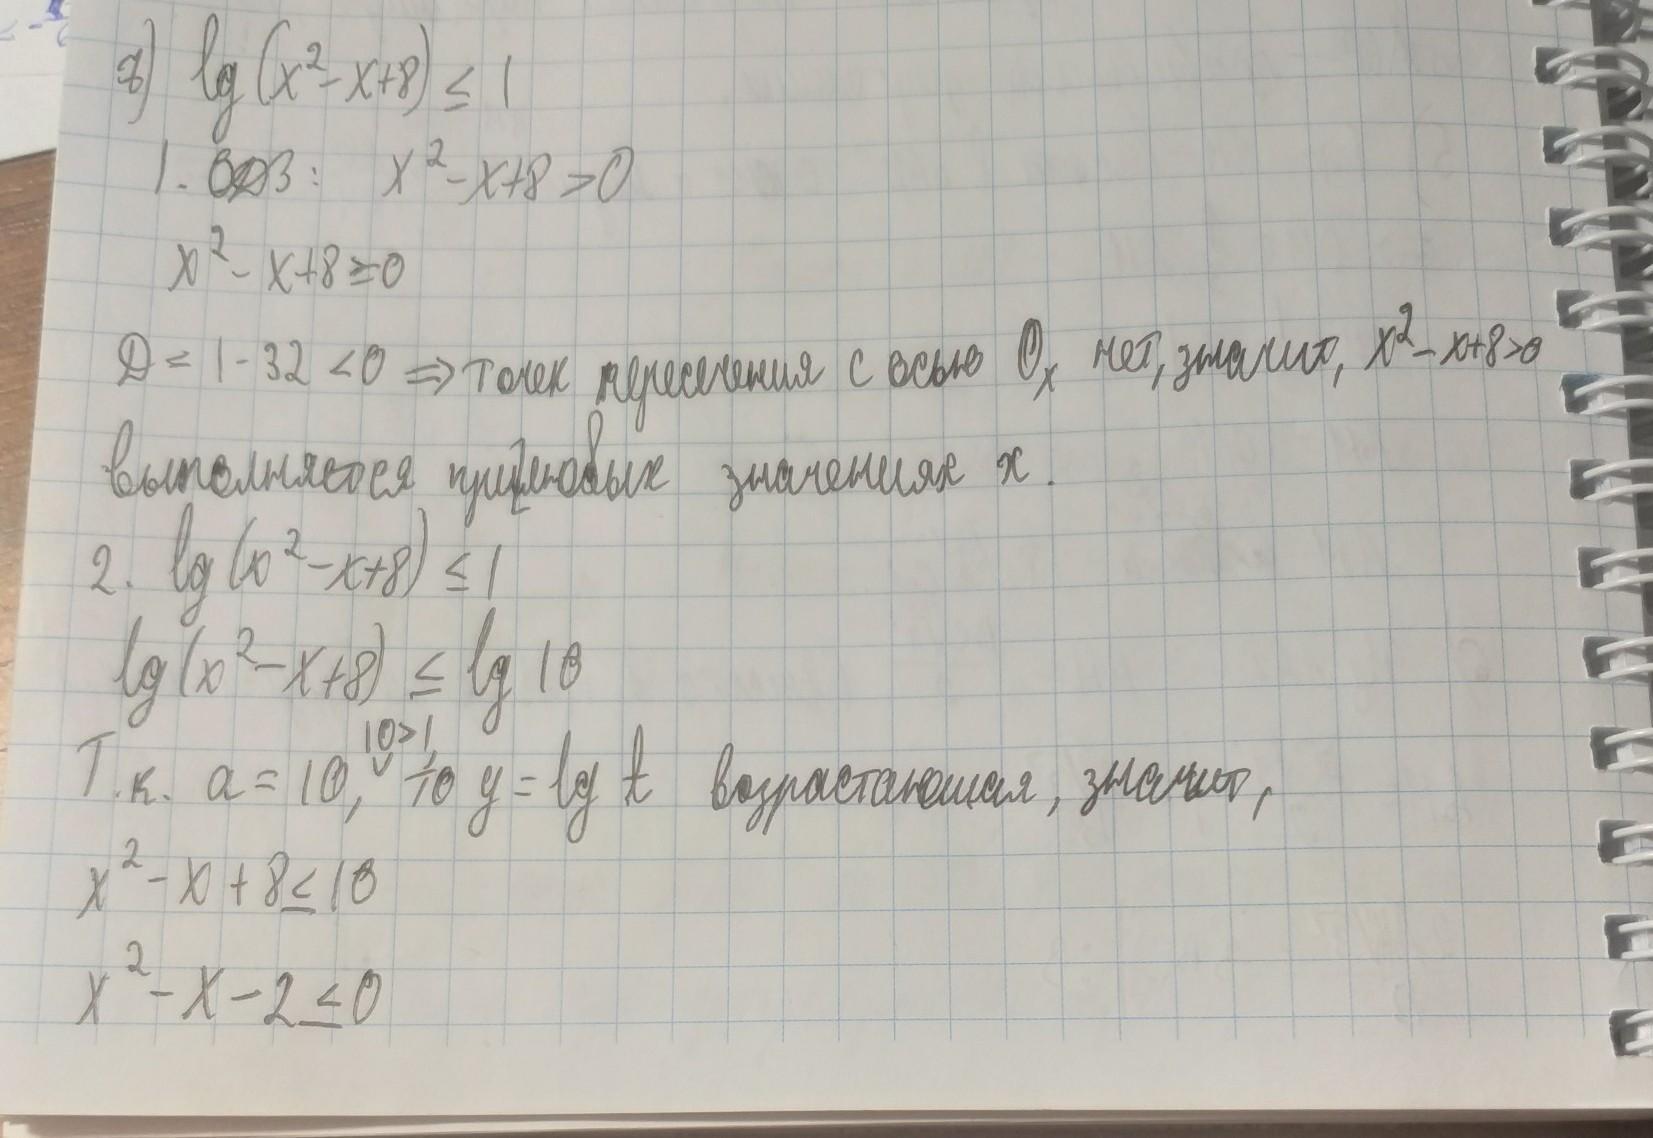 7) lg(x²-x+8) ≤ 1
1. ОДЗ: x²-x+8 >0
x²-x+8=0
D = 1-32 <0 => точек пересечения с осью Ox нет, значит, x²-x+8>0
выполняется при любых значениях x.
2. lg(x²-x+8) ≤ 1
lg(x²-x+8) ≤ lg 10
Т.к. a = 10, 10>1, то y = lg t возрастающая, значит,
x²-x+8 ≤ 10
x²-x-2 ≤ 0